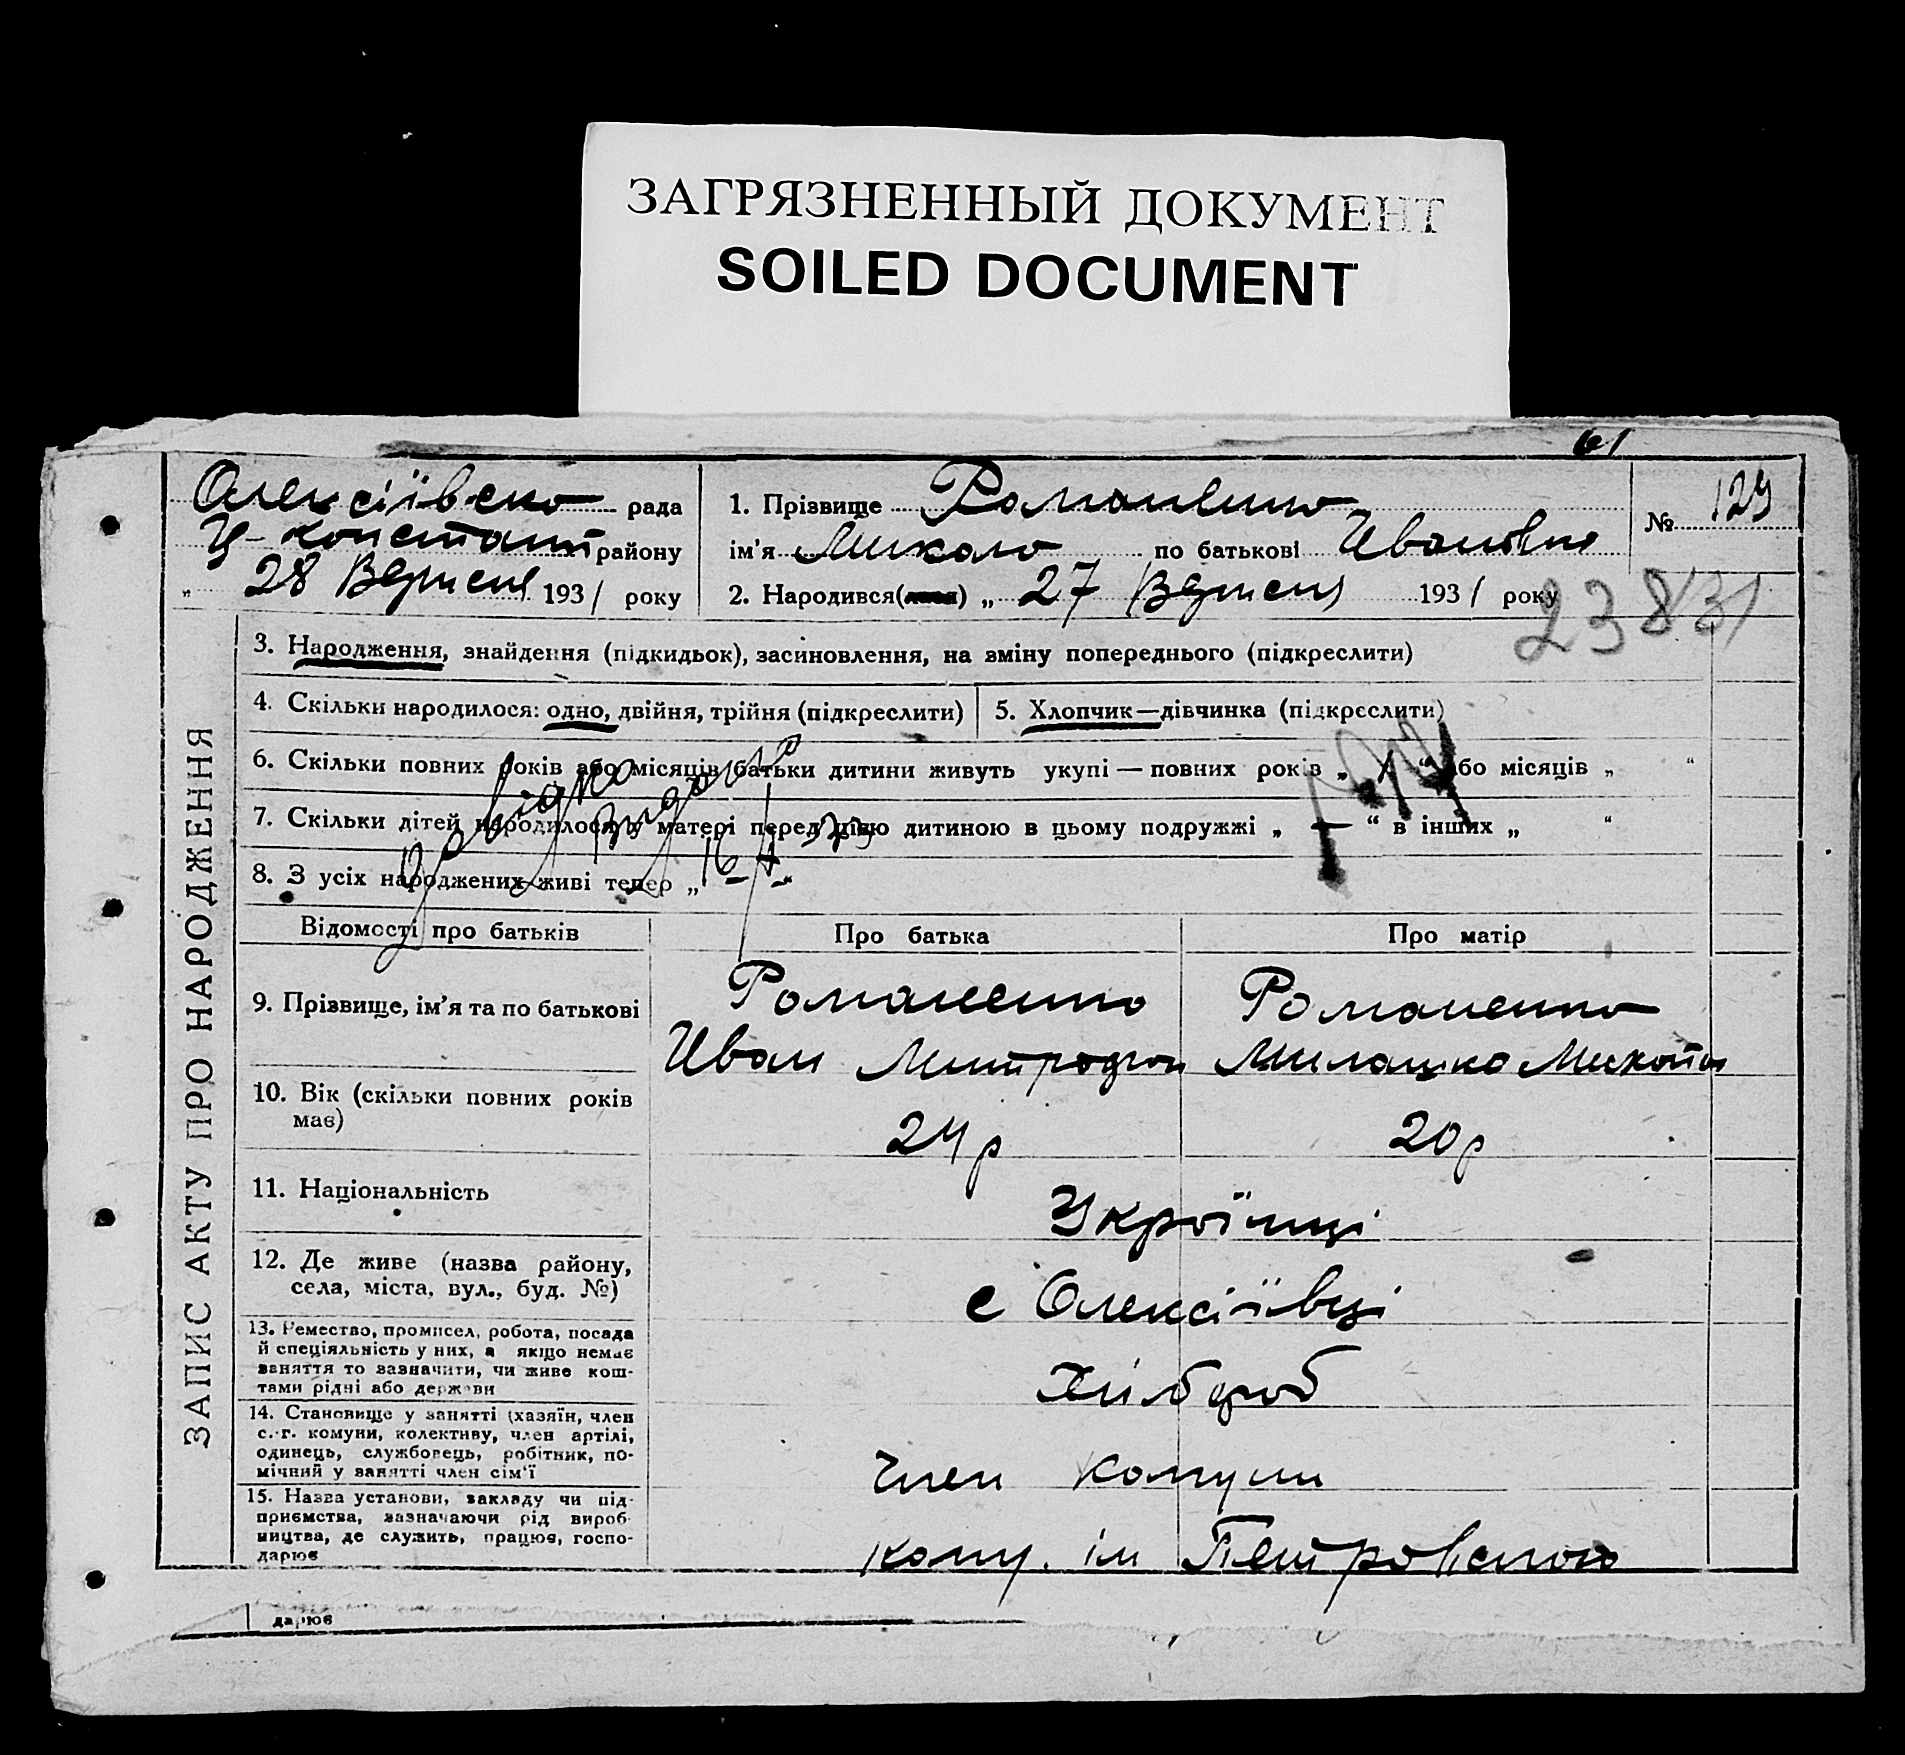 ЗАГРЯЗНЕННЫЙ ДОКУМЕНТ
SOILED DOCUMENT
61
Олексіївсько рада
Ц-констант району
„ 28 Вересня 1931 року
1. Прізвище Романенко
ім’я Микола по батькові Ивановно
2. Народився() „ 27 Вересня 1931 року
№ 129
ЗАПИС АКТУ ПРО НАРОДЖЕННЯ
3. Народження, знайдення (підкидьок), засиновлення, на зміну попереднього (підкреслити)
4. Скільки народилося: одно, двійня, трійня (підкреслити)
5. Хлопчик—дівчинка (підкреслити)
6. Скільки повних років або місяців батьки дитини живуть укупі — повних років „ 1 “ або місяців „ “
7. Скільки дітей народилося у матері перед цією дитиною в цьому подружжі „ — “ в інших „ “
8. З усіх народжених живі тепер „ — “
Відомості про батьків
Про батька
Про матір
9. Прізвище, ім’я та по батькові
Романенко
Иван Митрофан
Романенко
Милашка
10. Вік (скільки повних років
має)
24 р
20 р
11. Національність
Українці
12. Де живе (назва району,
села, міста, вул., буд. №)
с Олексіївці
13. Ремество, промисел, робота, посада
й спеціяльність у них, а якщо немає
заняття то зазначити, чи живе кош-
тами рідні або держави
Хлібороб
14. Становище у занятті (хазяїн, член
с.-г. комуни, колективу, член артілі,
одинець, службовець, робітник, по-
мічний у занятті член сім’ї
член комуни
15. Назва установи, закладу чи під-
приємства, зазначаючи рід вироб-
ництва, де служить, працює, госпо-
дарює
кому. ім Петровского
дарює